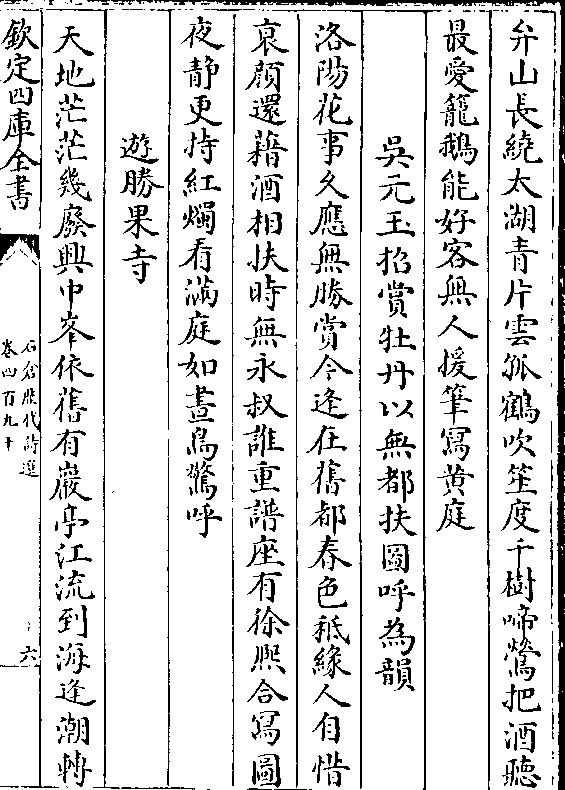 弁山長繞太湖青片雲孤鶴吹笙度千樹啼鶯把酒聽
最愛籠鵝能好客無人援筆寫黃庭
吳元玉招賞牡丹以無都扶圖呼為韻
洛陽花事久應無勝賞今逢在舊都春色秪緣人自惜
衰顔還藉酒相扶時無永叔誰重譜座有徐熈合寫圖
夜静更持紅燭看滿庭如晝鳥驚呼
遊勝果寺
天地茫茫幾廢興中峯依舊有巖亭江流到海逢潮轉
欽定四庫全書
石倉歴代詩選
卷四百九十
六